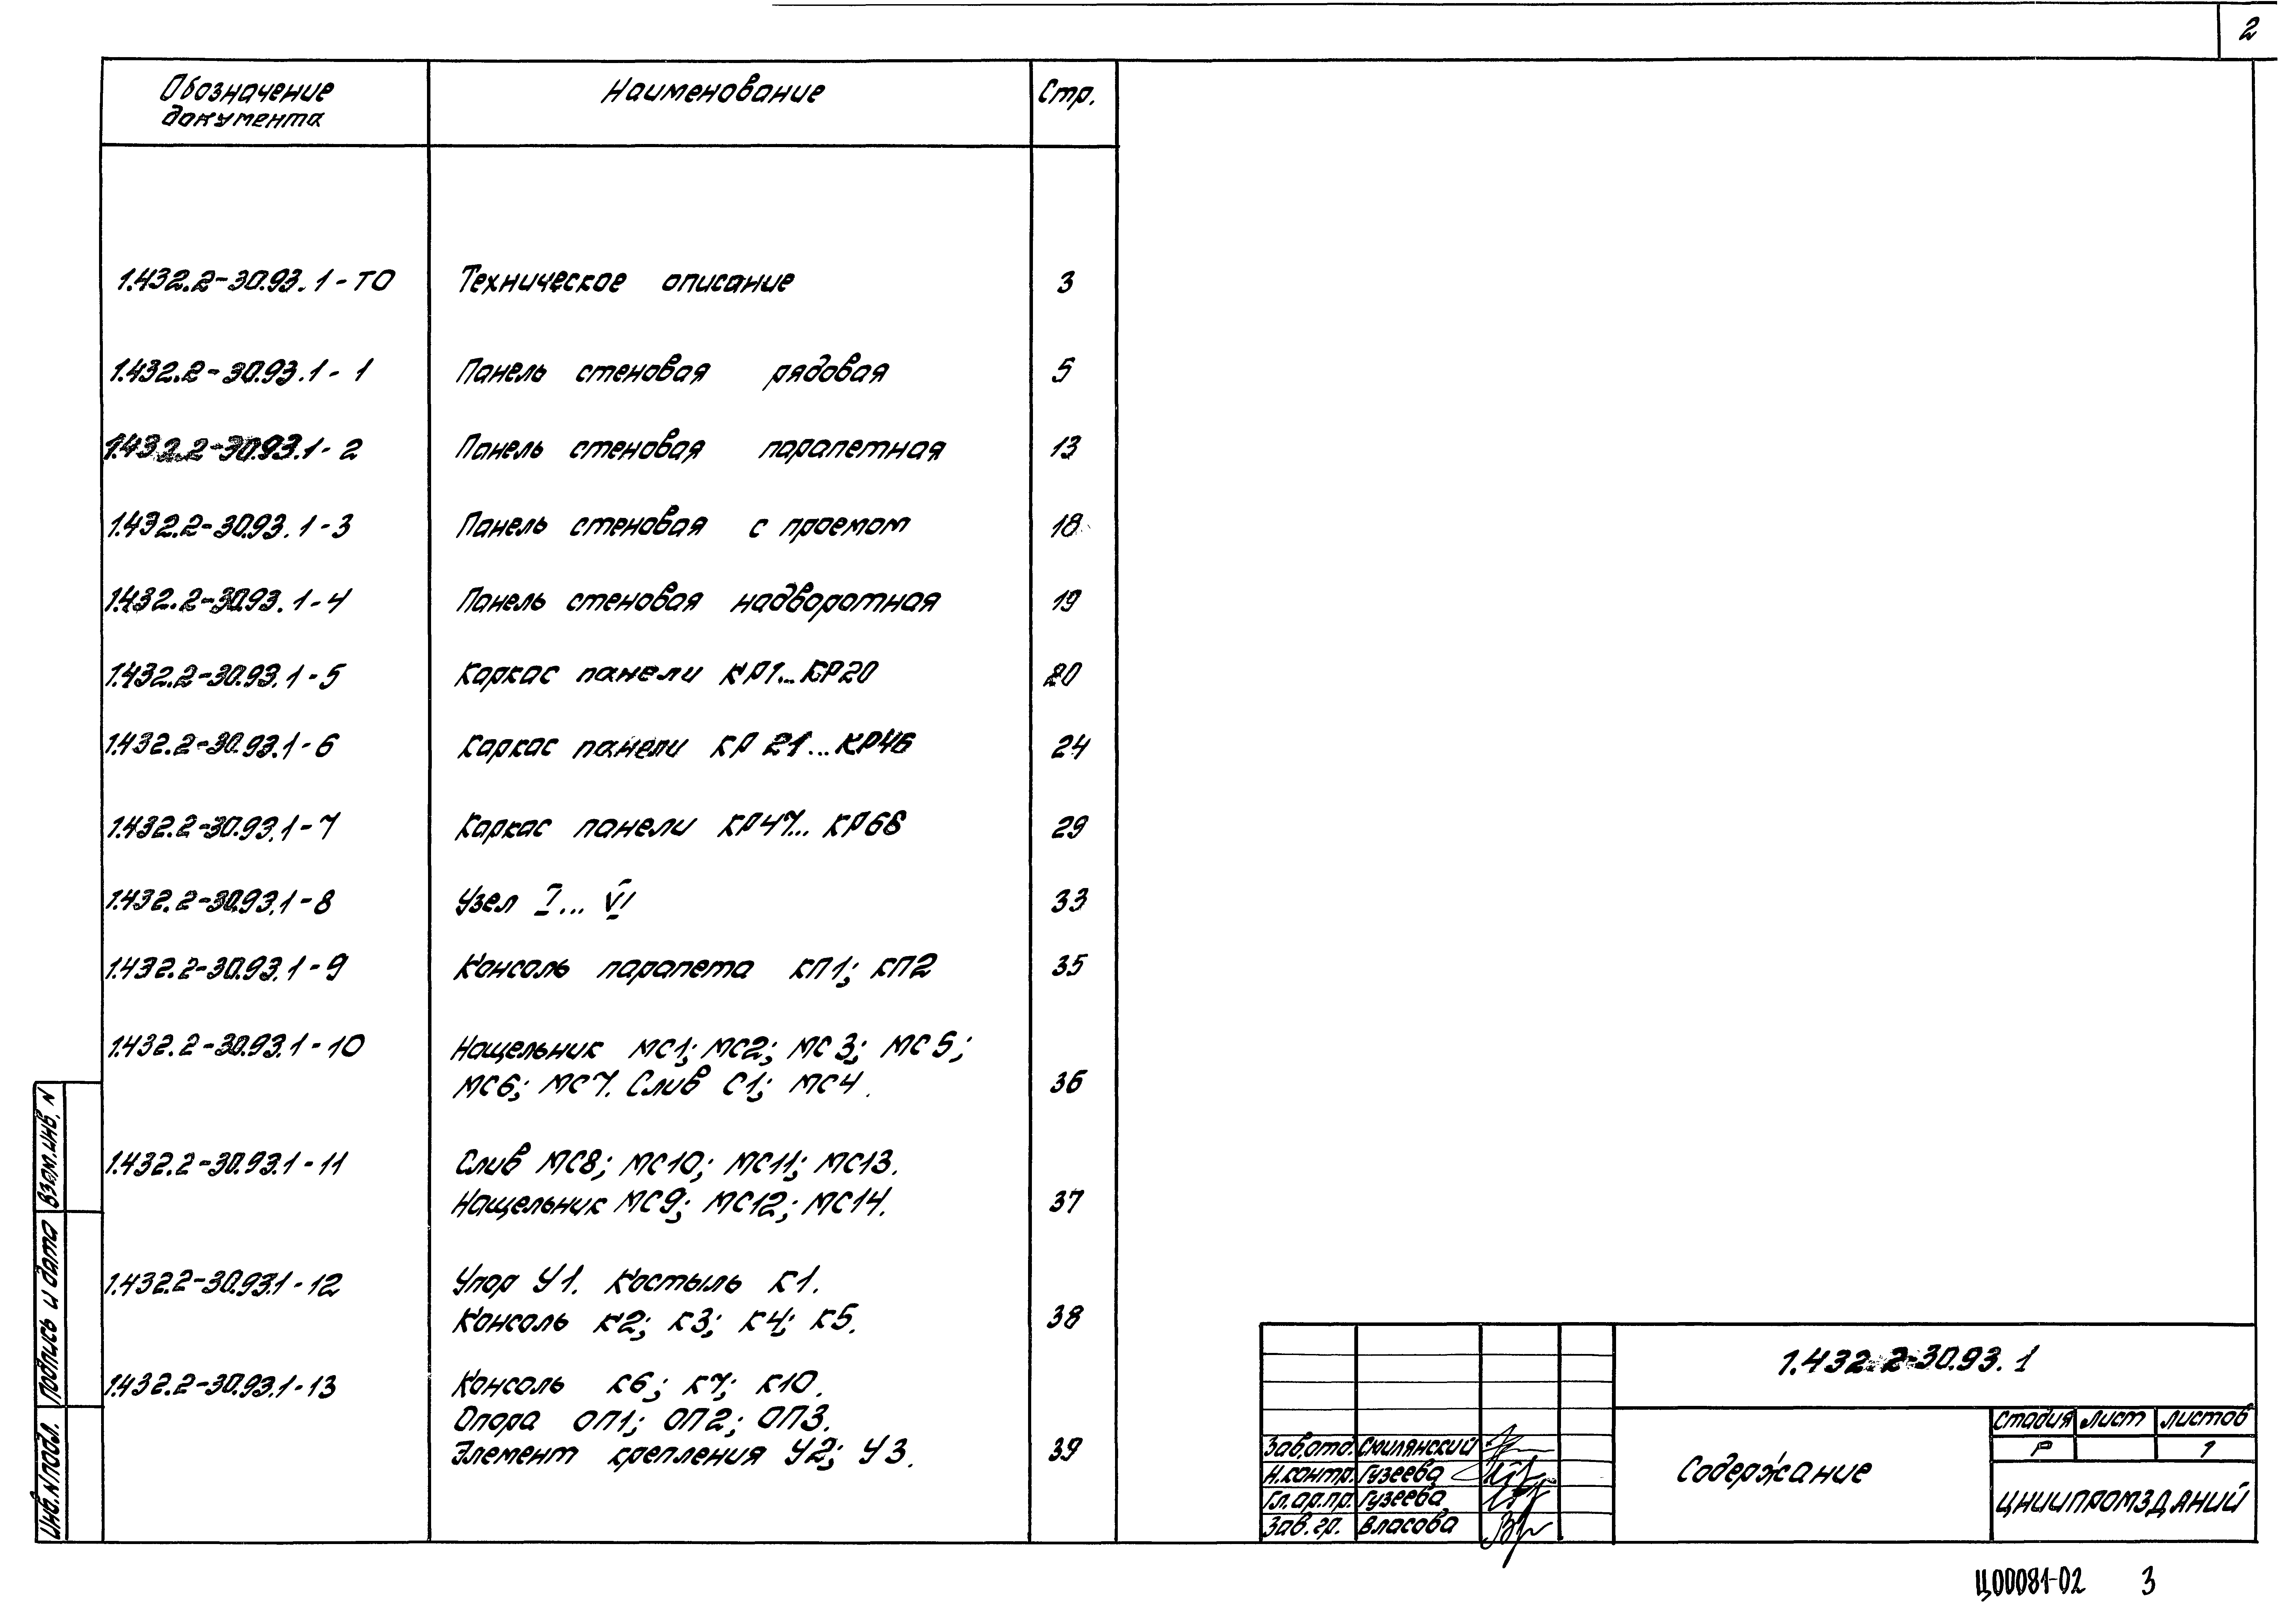 2
Обозначение документа Наименование Стр.
1.432.2-30.93.1-ТО Техническое описание 3
1.432.2-30.93.1-1 Панель стеновая рядовая 5
1.432.2-30.93.1-2 Панель стеновая парапетная 13
1.432.2-30.93.1-3 Панель стеновая с проемом 18
1.432.2-30.93.1-4 Панель стеновая надворотная 19
1.432.2-30.93.1-5 Каркас панели КР1...КР20 20
1.432.2-30.93.1-6 Каркас панели КР21...КР46 24
1.432.2-30.93.1-7 Каркас панели КР47...КР68 29
1.432.2-30.93.1-8 Узел I...VI 33
1.432.2-30.93.1-9 Консоль парапета КП1; КП2 35
1.432.2-30.93.1-10 Нащельник МС1; МС2; МС3; МС5;
МС6; МС7. Слив С1; МС4. 36
1.432.2-30.93.1-11 Слив МС8; МС10; МС11; МС13.
Нащельник МС9; МС12; МС14. 37
1.432.2-30.93.1-12 Упор У1. Костыль К1.
Консоль К2; К3; К4; К5. 38
1.432.2-30.93.1-13 Консоль К6; К7; К10.
Опора ОП1; ОП2; ОП3.
Элемент крепления У2; У3. 39
Взам.инв.N
Подпись и дата
Инв.N подл.
1.432.2-30.93.1
Зав.отд. Смилянский
Н.контр. Гузеева
Гл.ар.пр. Гузеева
Зав.гр. Власова
Содержание
Стадия Лист Листов
Р 1
ЦНИИПРОМЗДАНИЙ
Ц00081-02 3